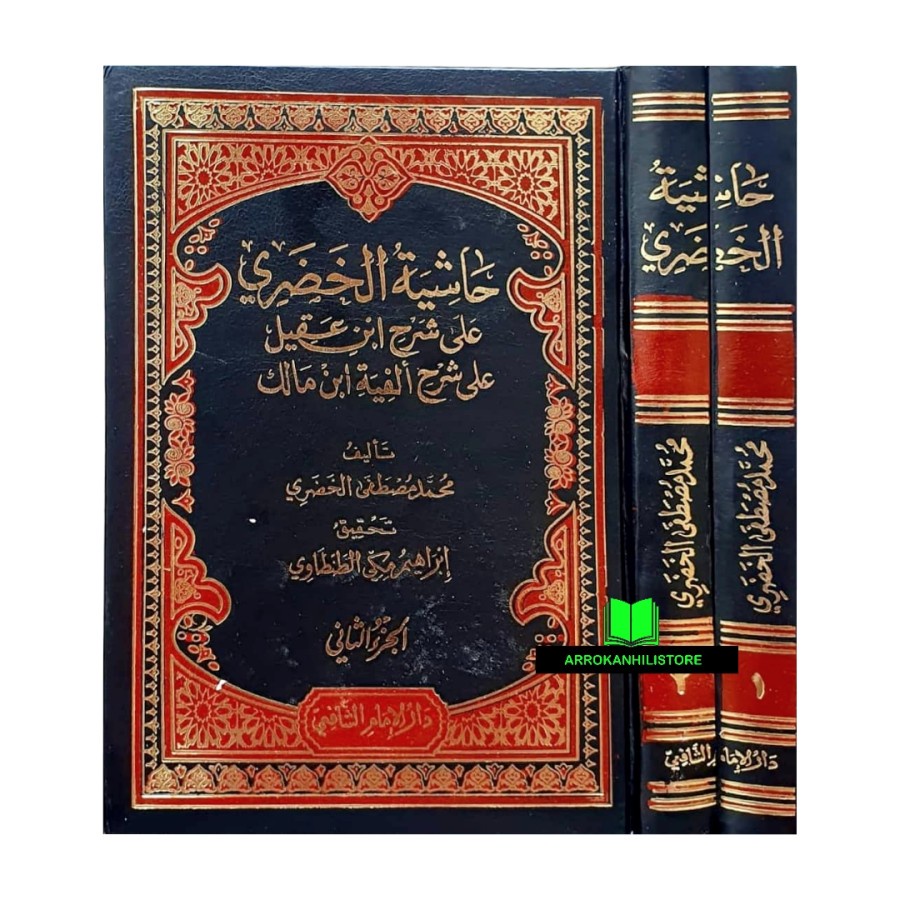 حَاشِيَةُ الخَضَرِي
عَلى شَرْحِ ابْنِ عَقِيل
عَلى شَرْحِ أَلفية ابْن مَالك
تَأليفُ
مُحمَّد مصْطَفى الخَضَري
تَحْقِيقُ
إِبْرَاهِيْم مَكّي الطَنطَاوِي
الجُزءُ الثَّاني
دَارُ الإِمَامِ الشَّافِعِيّ
حَاشِيَةُ
الخَضَرِي
مُحَمَّد مصْطَفى الخَضَرِي
مُحَمَّد مصْطَفى الخَضَرِي
٢
١
دَارُ الإِمَامِ الشَّافِعِيّ
ARROKANHILISTORE